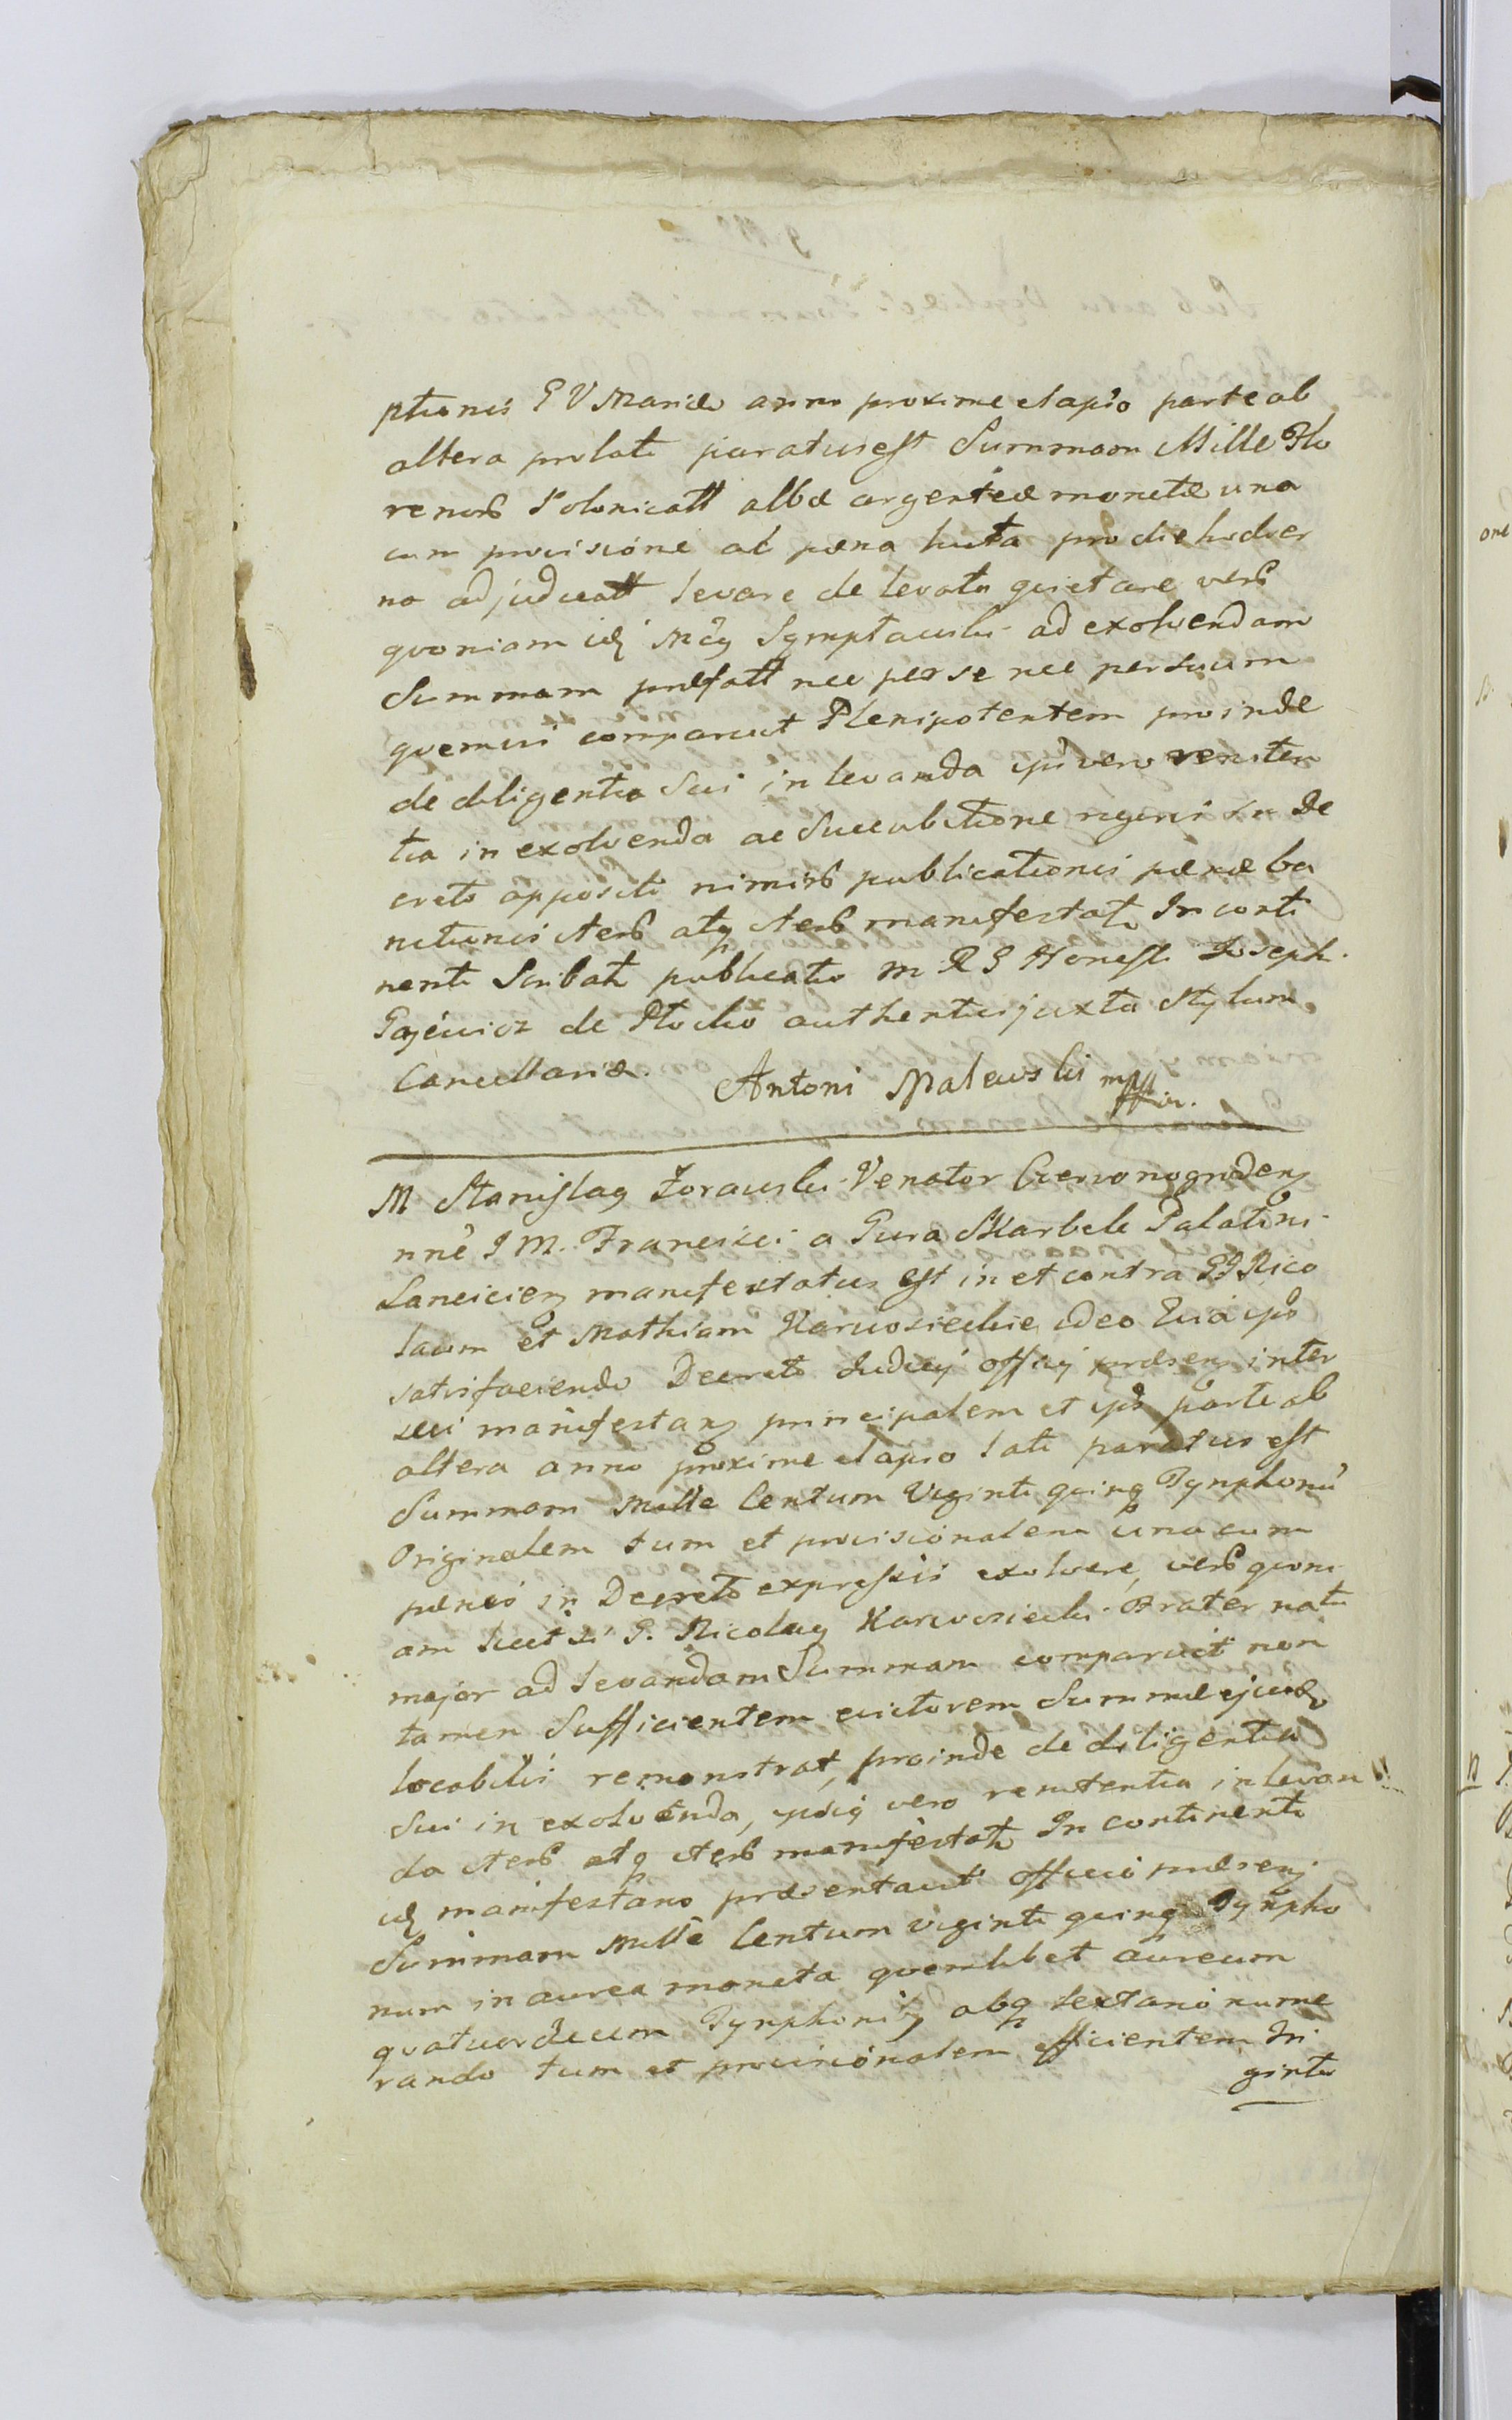 ptionis B V Mariæ anno proxime elapso parte ab
altera prolati paratus est Summam Mille Flo
renor Polonicall albæ argenteæ monetæ una
cum provisione ac pæna lucta pro die hodier
no adjudicatt levare de levata quietare vers
quoniam id Mcus Symptawski ad exolvendam
Summam præfatt nec per se nec per suum
quemvis comparuit Plenipotentem proinde
de diligentia Sui in levanda ipi vero reniten
tia in exolvenda ac Succubitione rigoris in De
creto appositi nimir publicationis pænæ ba
nitionis iter atq iter manifestat In conti
nenti Scribat publicatio M R S Honesti Joseph
Gajewicz de Plocko authentici juxta Stylum
Cancellariæ. Antoni Malewski mpp
M Stanislaus Żorawski Venator Czerwonogrodens
nnê I M. Francisci a Gura Skarbek Palatini
Lanciciens manifestatus est in et contra GG Nico
laum et Mathiam Karwosieckie ideo Quia ips
satisfaciendo Decreto Judicij officij præsens inter
sui manifestans principalem et ips parte ab
altera anno proxime elapso lati paratus est
Summam Mille Centum Viginti quinq Tynphonũ
Originalem tum et provisionalem una cum
pænis in Decreto expressis exolvere, vers quoni
am licet si G. Nicolaus Karwosiecki Frater natu
major ad levandam Summam comparuit non
tamen Sufficientem evictorem Summæ ejusd
locabilis remonstrat, proinde de diligentia
Sui in exolvenda, ipsiq vero renitentia in levan
da iter atq iter manifestat In continenti
id manifestans præsentavit officio præsenj
Summam Mille Centum viginti quinq Tynpho
num in aurea moneta quemlibet aureum
quatuordecim Tynphonib absq sextano nume
rando tum et provisionalem efficientem Tri
ginta